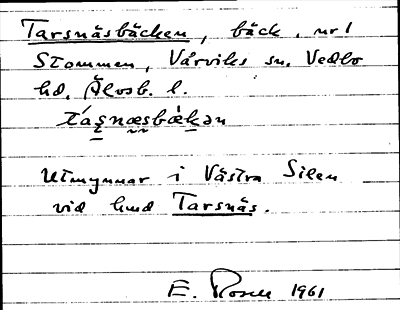 Tarsnäsbäcken, bäck, nr 1
Stommen, Vårviks sn. Vedbo
hd. Älvsb. l.
tásnæsbæ̀kən
Utmynnar i Västra Silen
vid hmd Tarsnäs.
E. Rosell 1961